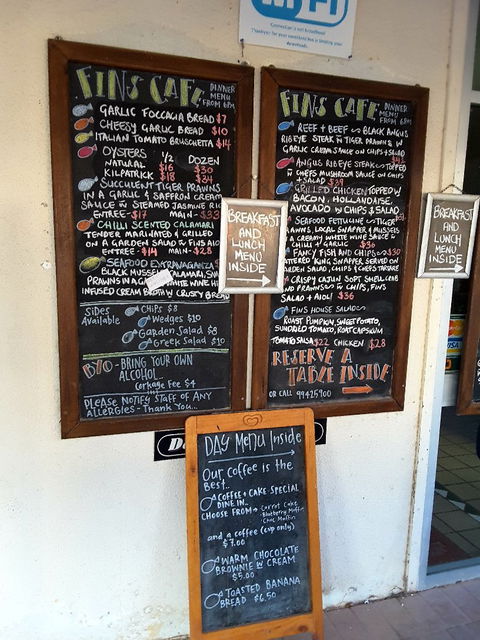 WiFi
FINS CAFE
DINNER
MENU
FROM 6PM
GARLIC FOCCACIA BREAD $7
CHEESY GARLIC BREAD $10
ITALIAN TOMATO BRUSCHETTA $14
OYSTERS 1/2 DOZEN
NATURAL $16 $30
KILPATRICK $18 $34
SUCCULENT TIGER PRAWNS
IN A GARLIC & SAFFRON CREAM
SAUCE W STEAMED JASMINE RICE
ENTREE - $17 MAIN - $33
CHILLI SCENTED CALAMARI
TENDER MARINATED & GRILLED
ON A GARDEN SALAD W FINS AIOLI
ENTREE - $14 MAIN - $28
SEAFOOD EXTRAVAGANZA
BLACK MUSSELS, CALAMARI,
PRAWNS IN A WHITE WINE
INFUSED CREAM BROTH W CRUSTY BREAD
SIDES
Available
CHIPS $8
Wedges $10
Garden Salad $8
Greek Salad $10
BYO - BRING YOUR OWN
ALCOHOL
Corkage Fee $4
PLEASE NOTIFY STAFF OF ANY
ALLERGIES - Thank You...
FINS CAFE
DINNER
MENU
FROM 6PM
REEF + BEEF BLACK ANGUS
RIB EYE STEAK W TIGER PRAWNS W
GARLIC CREAM SAUCE ON CHIPS + SALAD
ANGUS RIB EYE STEAK TOPPED
W CHEFS MUSHROOM SAUCE ON CHIPS
+ SALAD $39
GRILLED CHICKEN TOPPED W
BACON, HOLLANDAISE,
AVOCADO W CHIPS & SALAD
SEAFOOD FETTUCINE W TIGER
PRAWNS, LOCAL SNAPPER & MUSSELS
A CREAMY WHITE WINE SAUCE W
CHILLI & GARLIC $36
FANCY FISH AND CHIPS $30
BATTERED KING SNAPPER, SERVED ON
GARDEN SALAD, CHIPS & CHEFS TARTARE
CRISPY CAJUN SOFT SHELL CRAB
AND PRAWNS W CHIPS, FINS
SALAD + AIOLI $36
FINS HOUSE SALAD
ROAST PUMPKIN, SWEET POTATO,
SUNDRIED TOMATO, ROAST CAPSICUM
TOMATO SALSA $22 CHICKEN $28
RESERVE A
TABLE INSIDE
OR CALL 99425900
BREAKFAST
AND
LUNCH
MENU
INSIDE
BREAKFAST
AND
LUNCH
MENU
INSIDE
VISA
DAY MENU Inside
Our coffee is the
Best..
COFFEE + CAKE SPECIAL
DINE IN..
CHOOSE FROM Carrot Cake
Blueberry Muffin
Choc Muffin
and a coffee (cup only)
$7.00
WARM CHOCOLATE
BROWNIE W CREAM
$5.00
TOASTED BANANA
BREAD $6.50